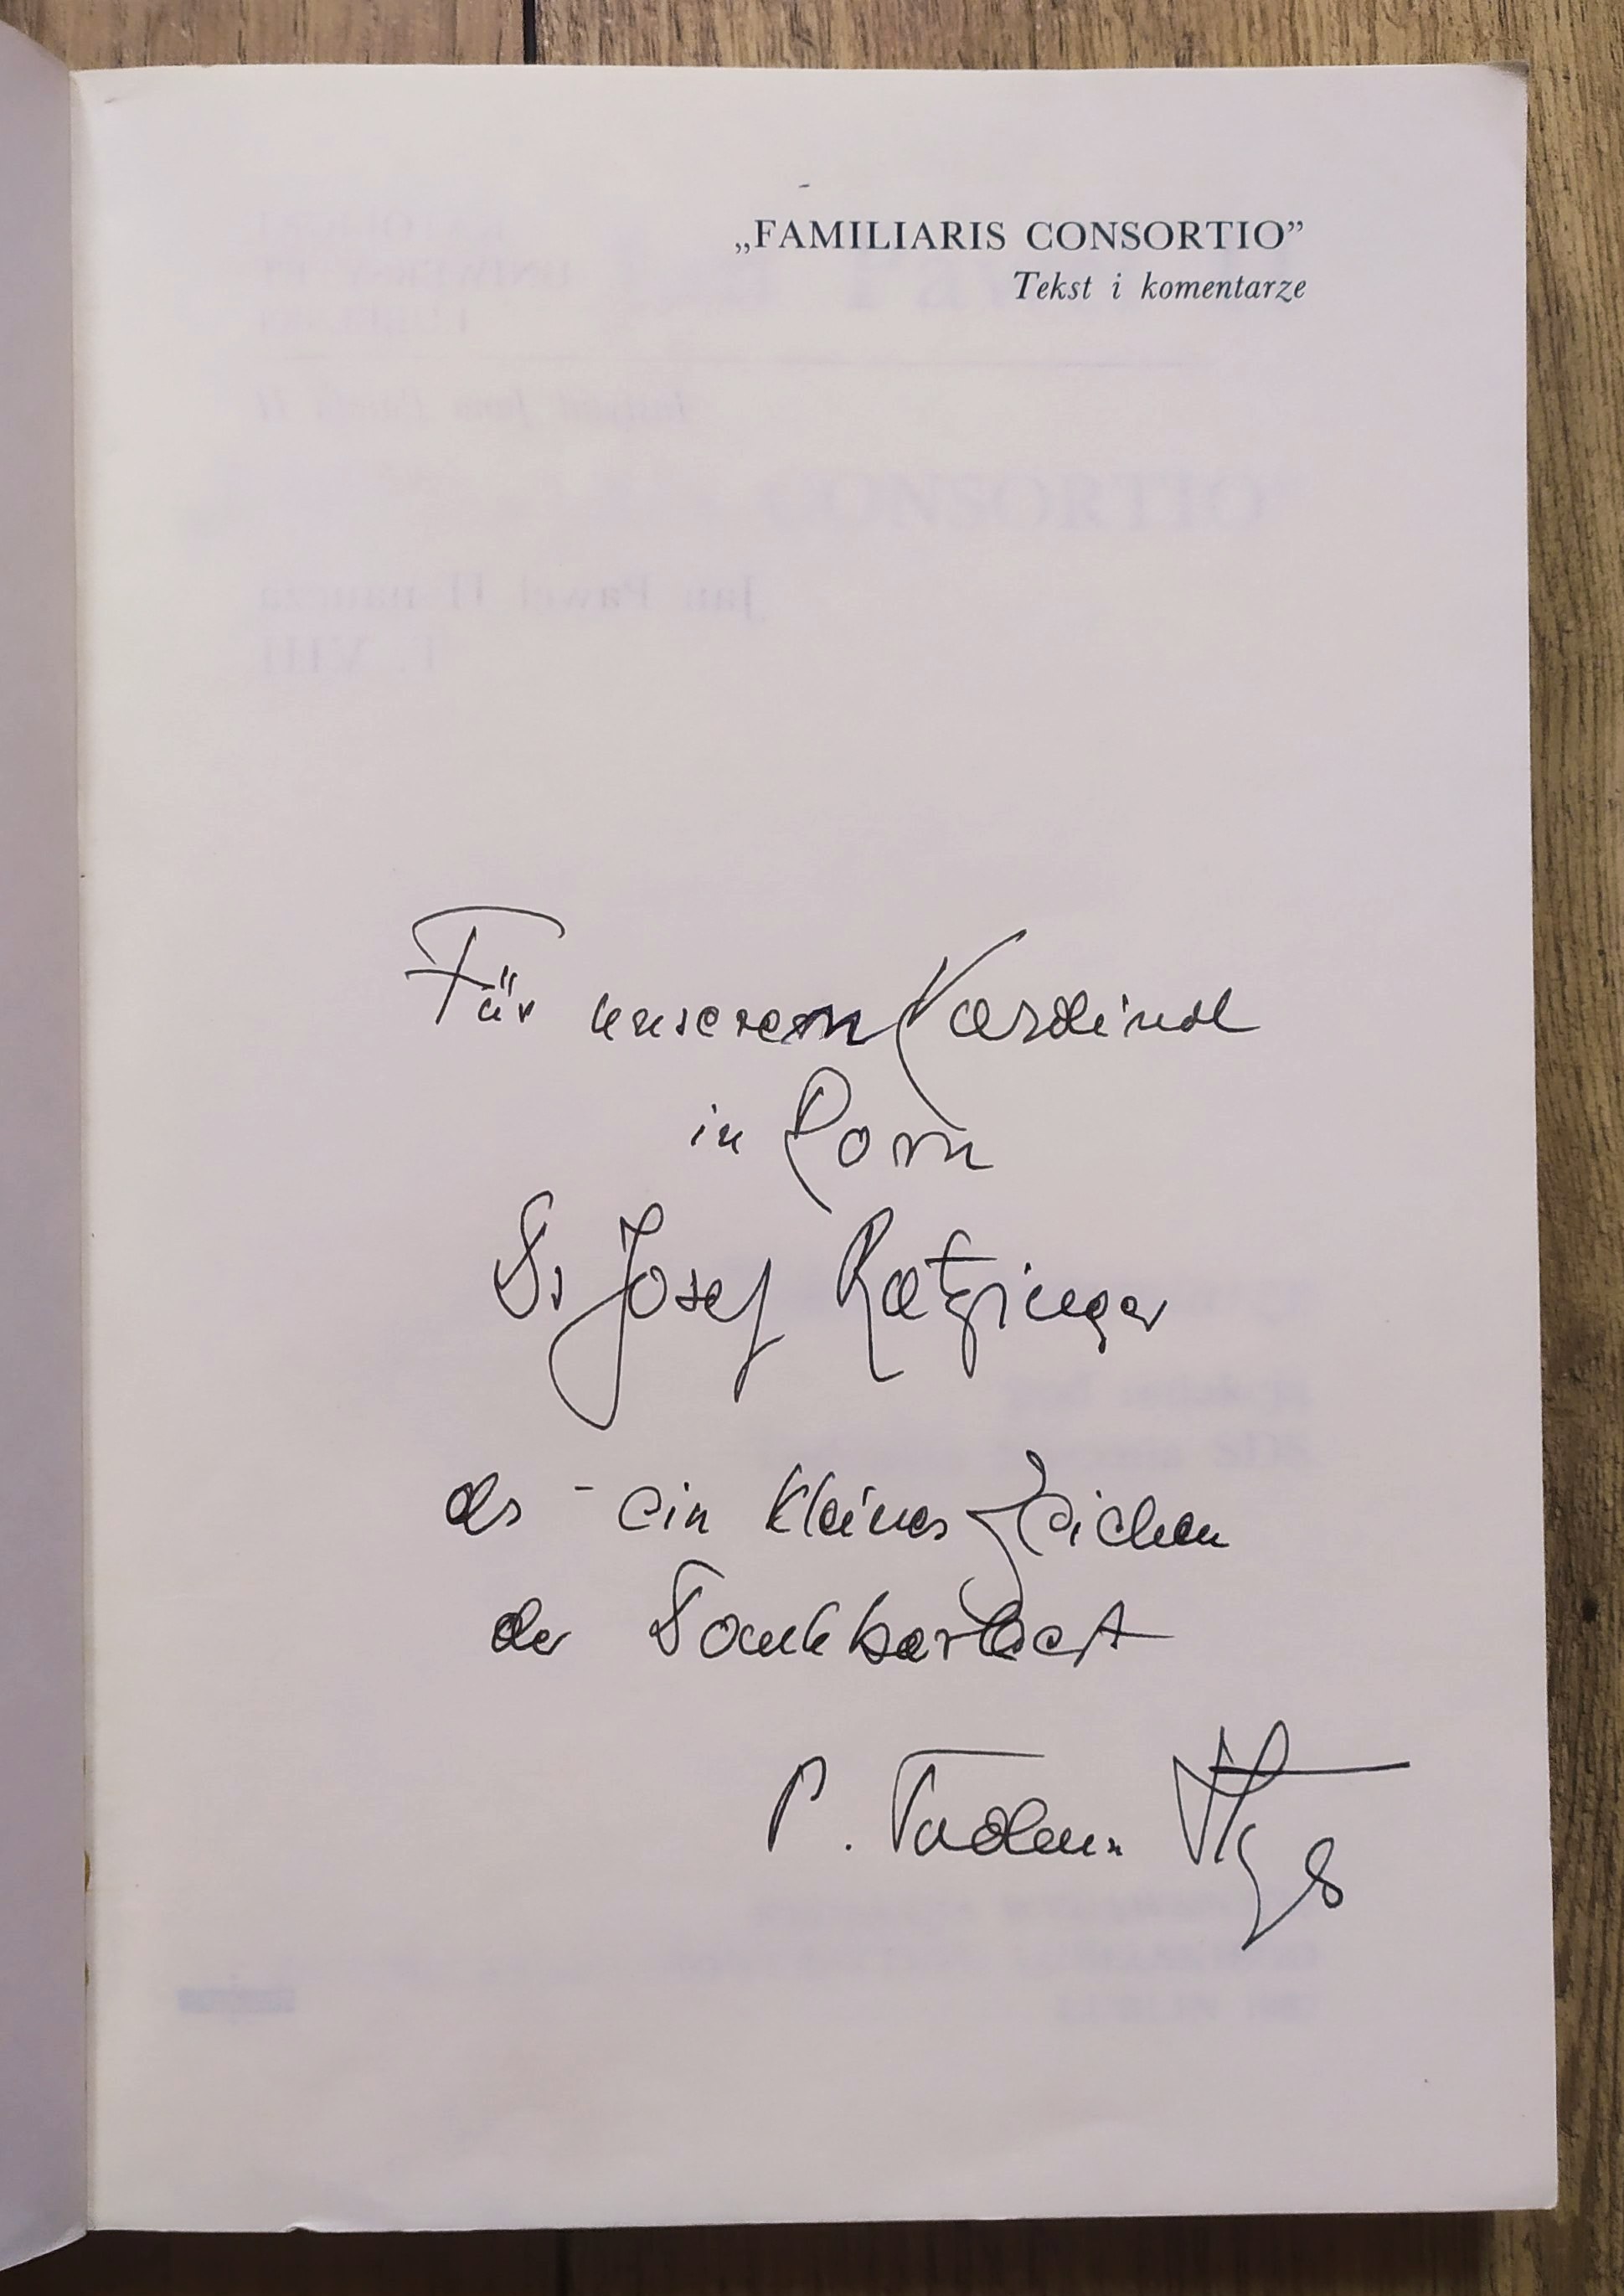 „FAMILIARIS CONSORTIO”
Tekst i komentarze
Für unserem Kardinal
in Rom
Dr Josef Ratzinger
als - ein kleines Zeichen
der Dankbarkeit
P. Tadeusz